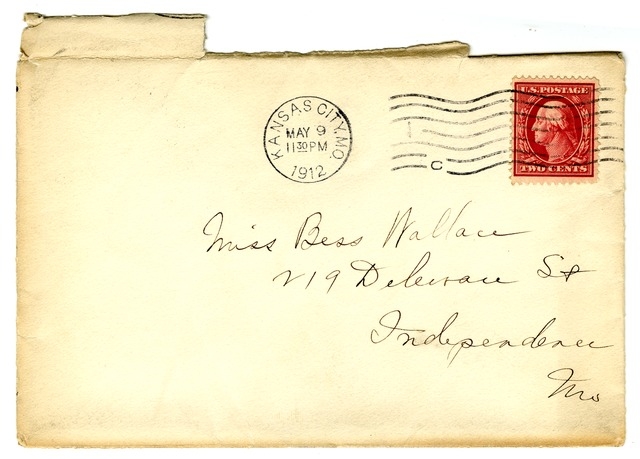 KANSAS CITY, MO.
MAY 9
11 30 PM
1912
C
U.S. POSTAGE
TWO CENTS
Miss Bess Wallace
219 Delewau St
Independence
Mo